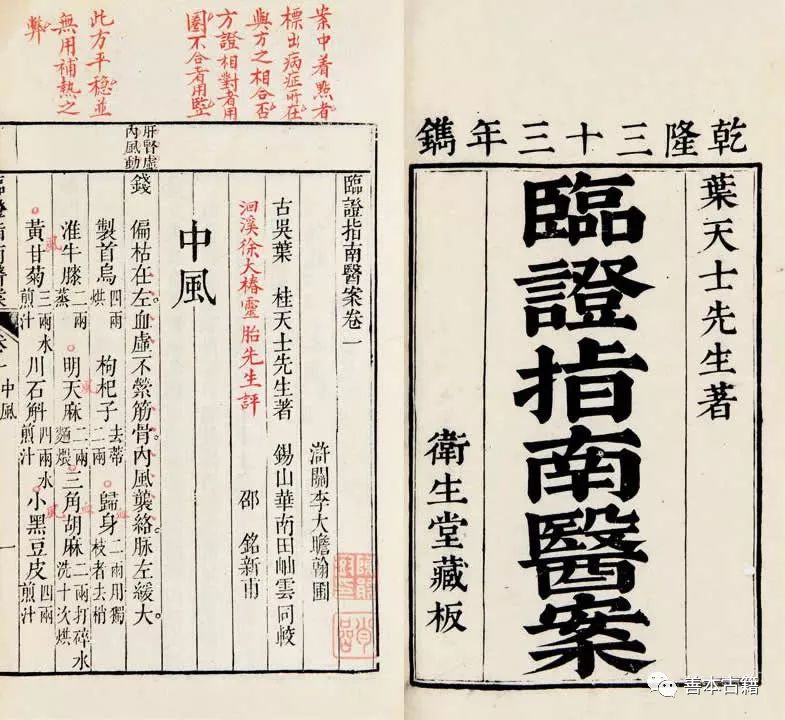 乾隆三十三年鐫
葉天士先生著
臨證指南醫案
衛生堂藏板
案中着點者
標出病症所在
與方之相合否
方證相對者用
圈不合者用竪
此方平穩並
無用補熱之
弊
臨證指南醫案卷一
滸關李大瞻翰圃
古吳葉 桂天士先生著 錫山華南田岫雲同較
洄溪徐大椿靈胎先生評 邵 銘新甫
中風
肝腎虛
內風動
錢 偏枯在左。血虛不縈筋骨。內風襲絡。脉左緩大。
製首烏 四兩烘 枸杞子 去蒂二兩 歸身 二兩用獨枝者去梢
淮牛膝 二兩蒸 明天麻 二兩麵煨 三角胡麻 二兩打碎水洗十次烘
黃甘菊 三兩水煎汁 川石斛 四兩水煎汁 小黑豆皮 四兩煎汁
臨證指南醫案 卷一 中風 一
善本古籍